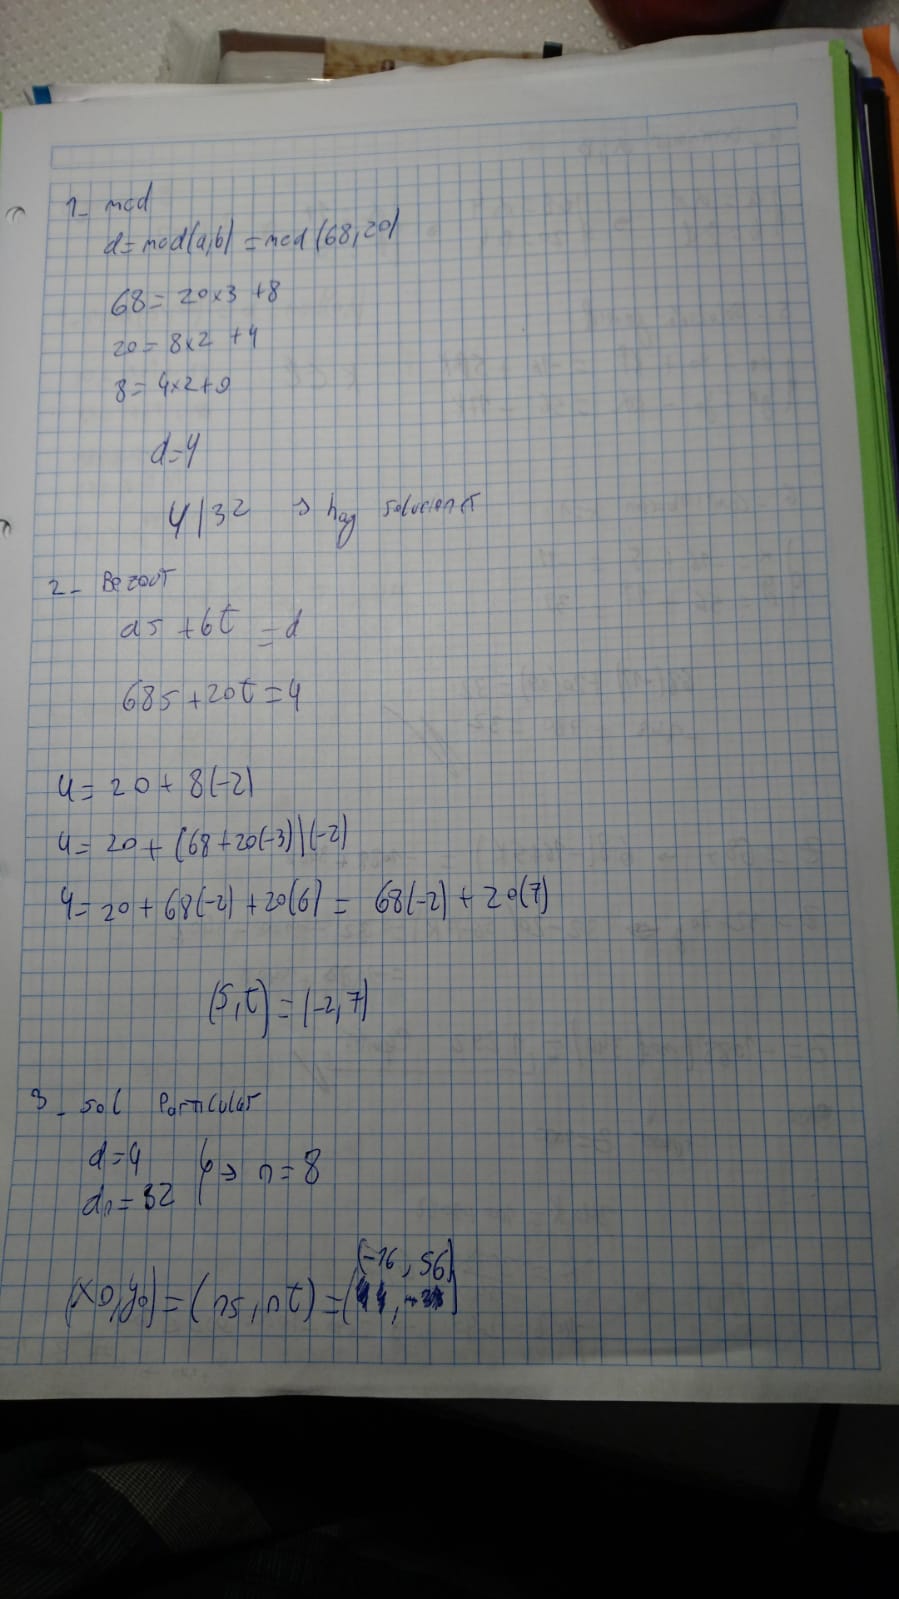 1- mcd
d=mcd(a,b) = mcd(68,20)
68= 20x3 +8
20= 8x2 +4
8= 4x2+0
d=4
4|32 → hay soluciones
2- Bezout
as +bt = d
68s +20t =4
4= 20+ 8(-2)
4= 20+ (68+20(-3))(-2)
4= 20+ 68(-2) +20(6) = 68(-2) + 20(7)
(s,t) = (-2,7)
3- sol particular
d=4
dn=32 } → n=8
(-16, 56)
(x0,y0) = (ns, nt) = (